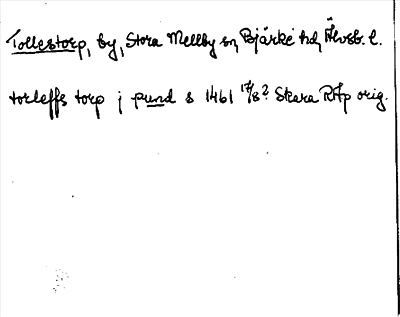 Tollestorp, by, Stora Mellby sn, Bjärke hd, Älvsb. l.
torleffs torp j pund s 1461 17/8? Skara RAp orig.